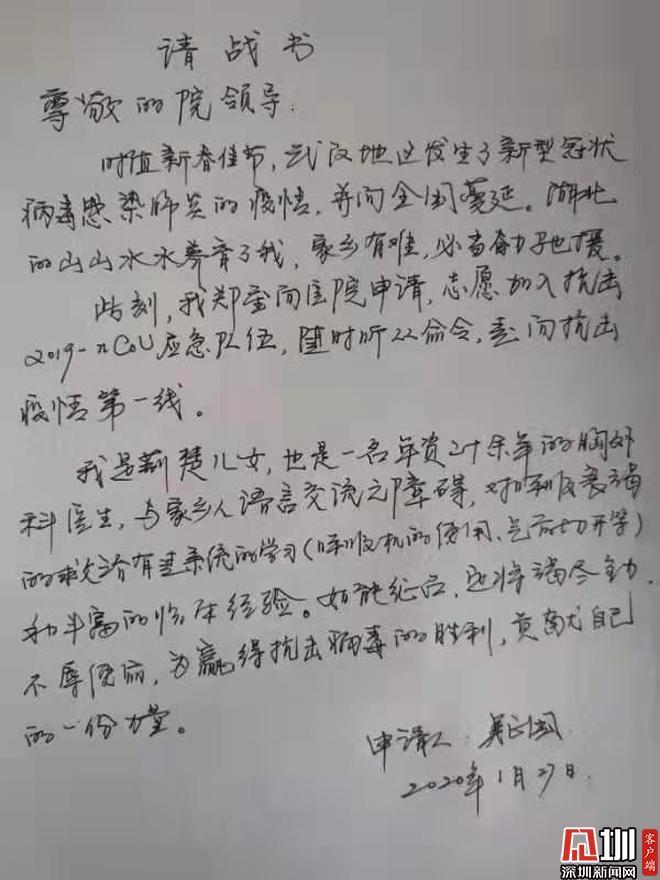 请战书
尊敬的院领导.
时值新春佳节,武汉地区发生了新型冠状
病毒感染肺炎的疫情,并向全国蔓延。湖北
的山山水水养育了我,家乡有难,必当奋力驰援。
此刻,我郑重向医院申请,志愿加入抗击
2019-nCoV应急队伍,随时听从命令,赴向抗击
疫情第一线。
我是荆楚儿女,也是一名年资二十余年的胸外
科医生,与家乡人语言交流无障碍,对呼吸衰竭
的救治有过系统的学习(呼吸机的使用、气管切开等)
和丰富的临床经验。如能征召,必将竭尽全力,
不辱使命,为赢得抗击病毒的胜利,贡献自己
的一份力量。
申请人:吴
2020年1月27日.
深圳新闻网
客户端